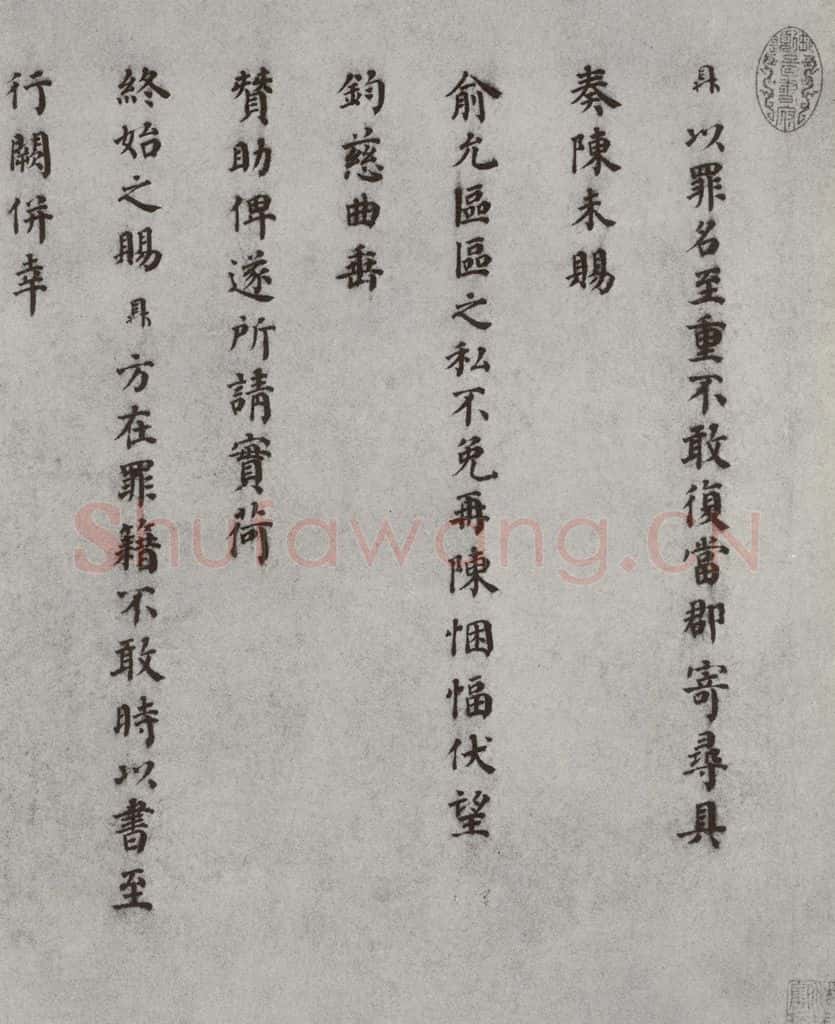 鼎以罪名至重不敢復當郡寄尋具
奏陳未賜
俞允區區之私不免再陳悃愊伏望
鈞慈曲垂
贊助俾遂所請實荷
終始之賜鼎方在罪籍不敢時以書至
行闕併幸
Shufawang.CN